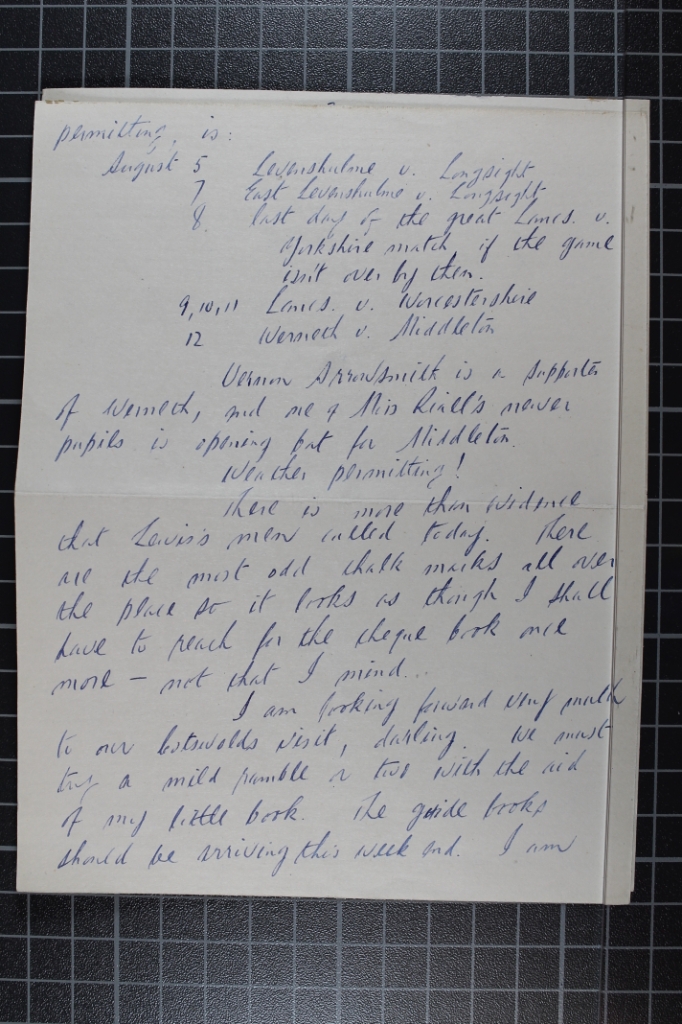 permitting, is:
August 5 Levenshulme v. Longsight
7 East Levenshulme v. Longsight
8. last day of the great Lancs. v.
Yorkshire match, if the game
isn't over by then.
9, 10, 11 Lancs. v. Worcestershire
12 Werneth v. Middleton
Vernon Arrowsmith is a supporter
of Werneth, and one of Miss Riall's newer
pupils is opening bat for Middleton.
Weather permitting!
There is more than evidence
that Lewis's men called today. There
are the most odd chalk marks all over
the place so it looks as though I shall
have to reach for the cheque book once
more – not that I mind...
I am looking forward very much
to our Cotswolds visit, darling. We must
try a mild ramble or two with the aid
of my little book. The guide books
should be arriving this week end. I am